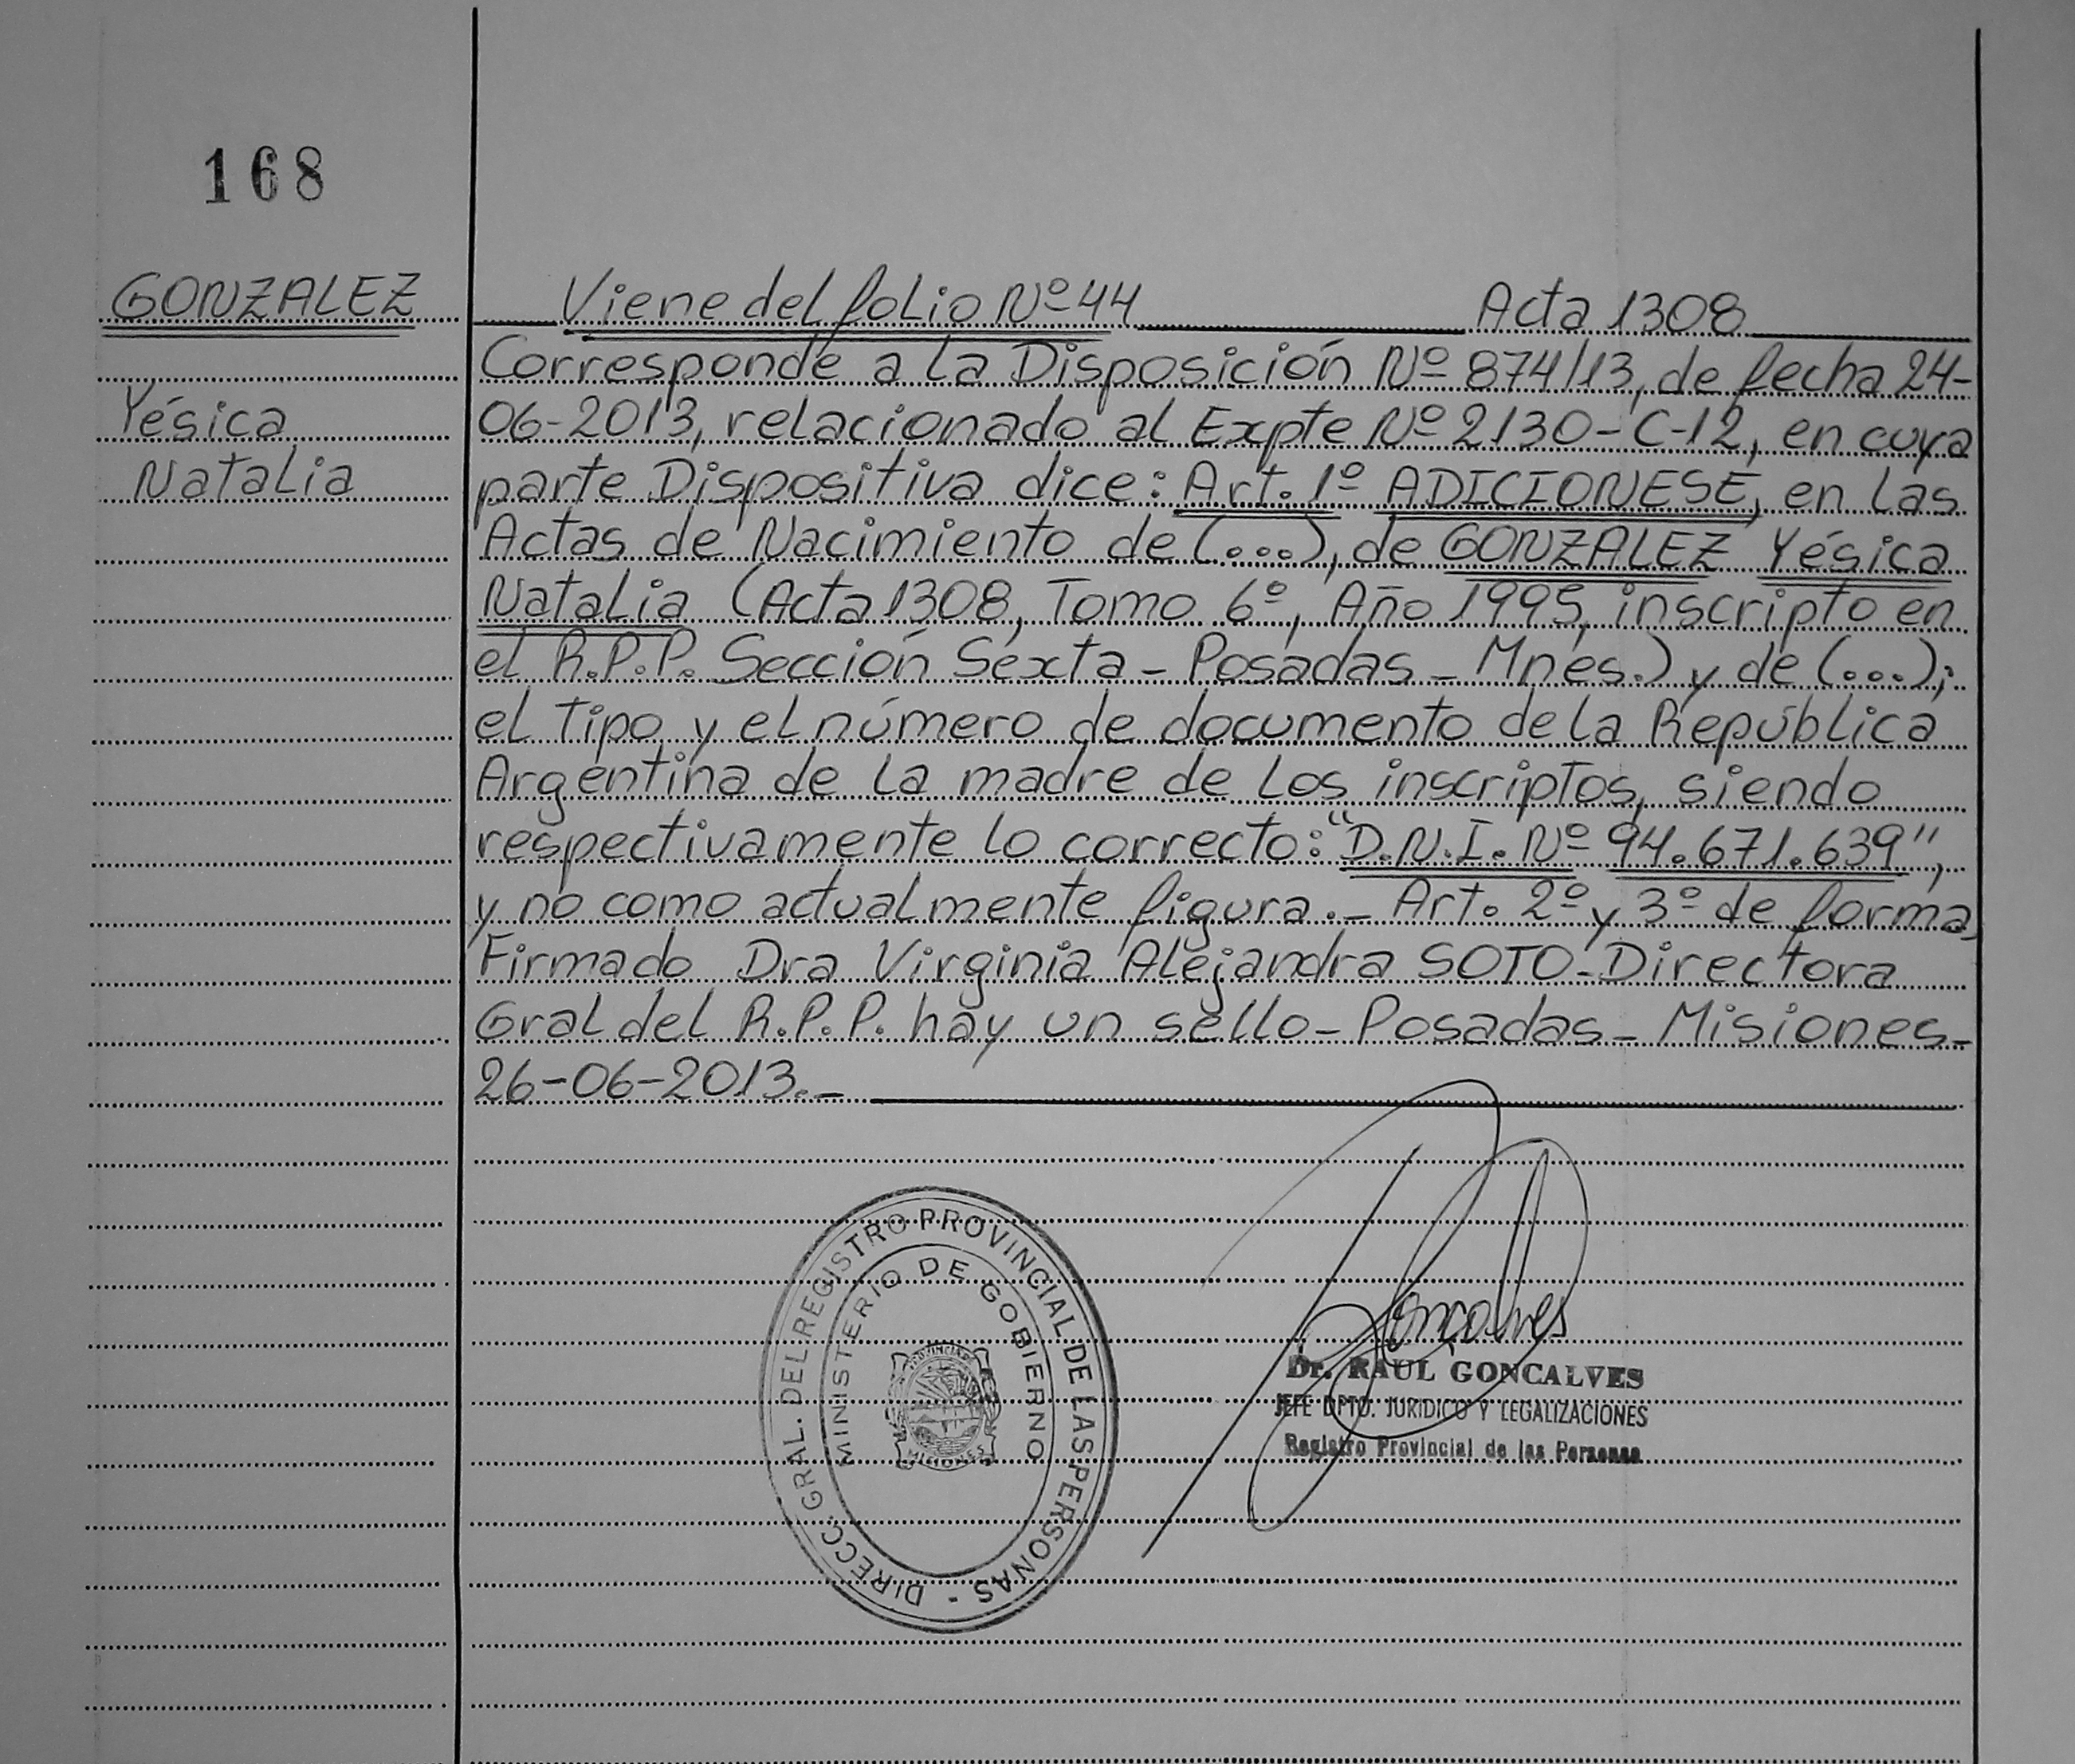 168
GONZALEZ
Yésica
Natalia
Viene del folio Nº 44 Acta 1308
Corresponde a la Disposición Nº 874/13, de fecha 24-
06-2013, relacionado al Expte Nº 2130-C-12, en cuya
parte Dispositiva dice: Art. 1º ADICIONESE, en las
Actas de Nacimiento de (...), de GONZALEZ Yésica
Natalia (Acta 1308, Tomo 6º, Año 1995, inscripto en
el R.P.P. Sección Sexta - Posadas - Mnes.) y de (...);
el tipo y el número de documento de la República
Argentina de la madre de los inscriptos, siendo
respectivamente lo correcto: "D.N.I. Nº 94.671.639",
y no como actualmente figura.- Art. 2º y 3º de forma,
Firmado Dra Virginia Alejandra SOTO-Directora
Gral del R.P.P. hay un sello-Posadas-Misiones-
26-06-2013.-
DIRECC. GRAL. DEL REGISTRO PROVINCIAL DE LAS PERSONAS -
MINISTERIO DE GOBIERNO
PROVINCIA
MISIONES
Goncalves
Dr. RAUL GONCALVES
JEFE DPTO. JURIDICO Y LEGALIZACIONES
Registro Provincial de las Personas